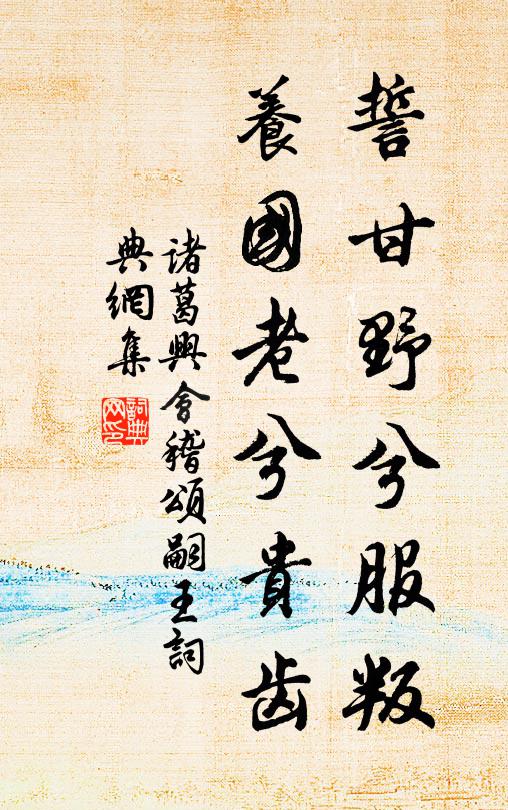 誓甘野兮服叛
養國老兮貴齿
諸葛興會稽頌嗣王詞
典網集
詞典網印